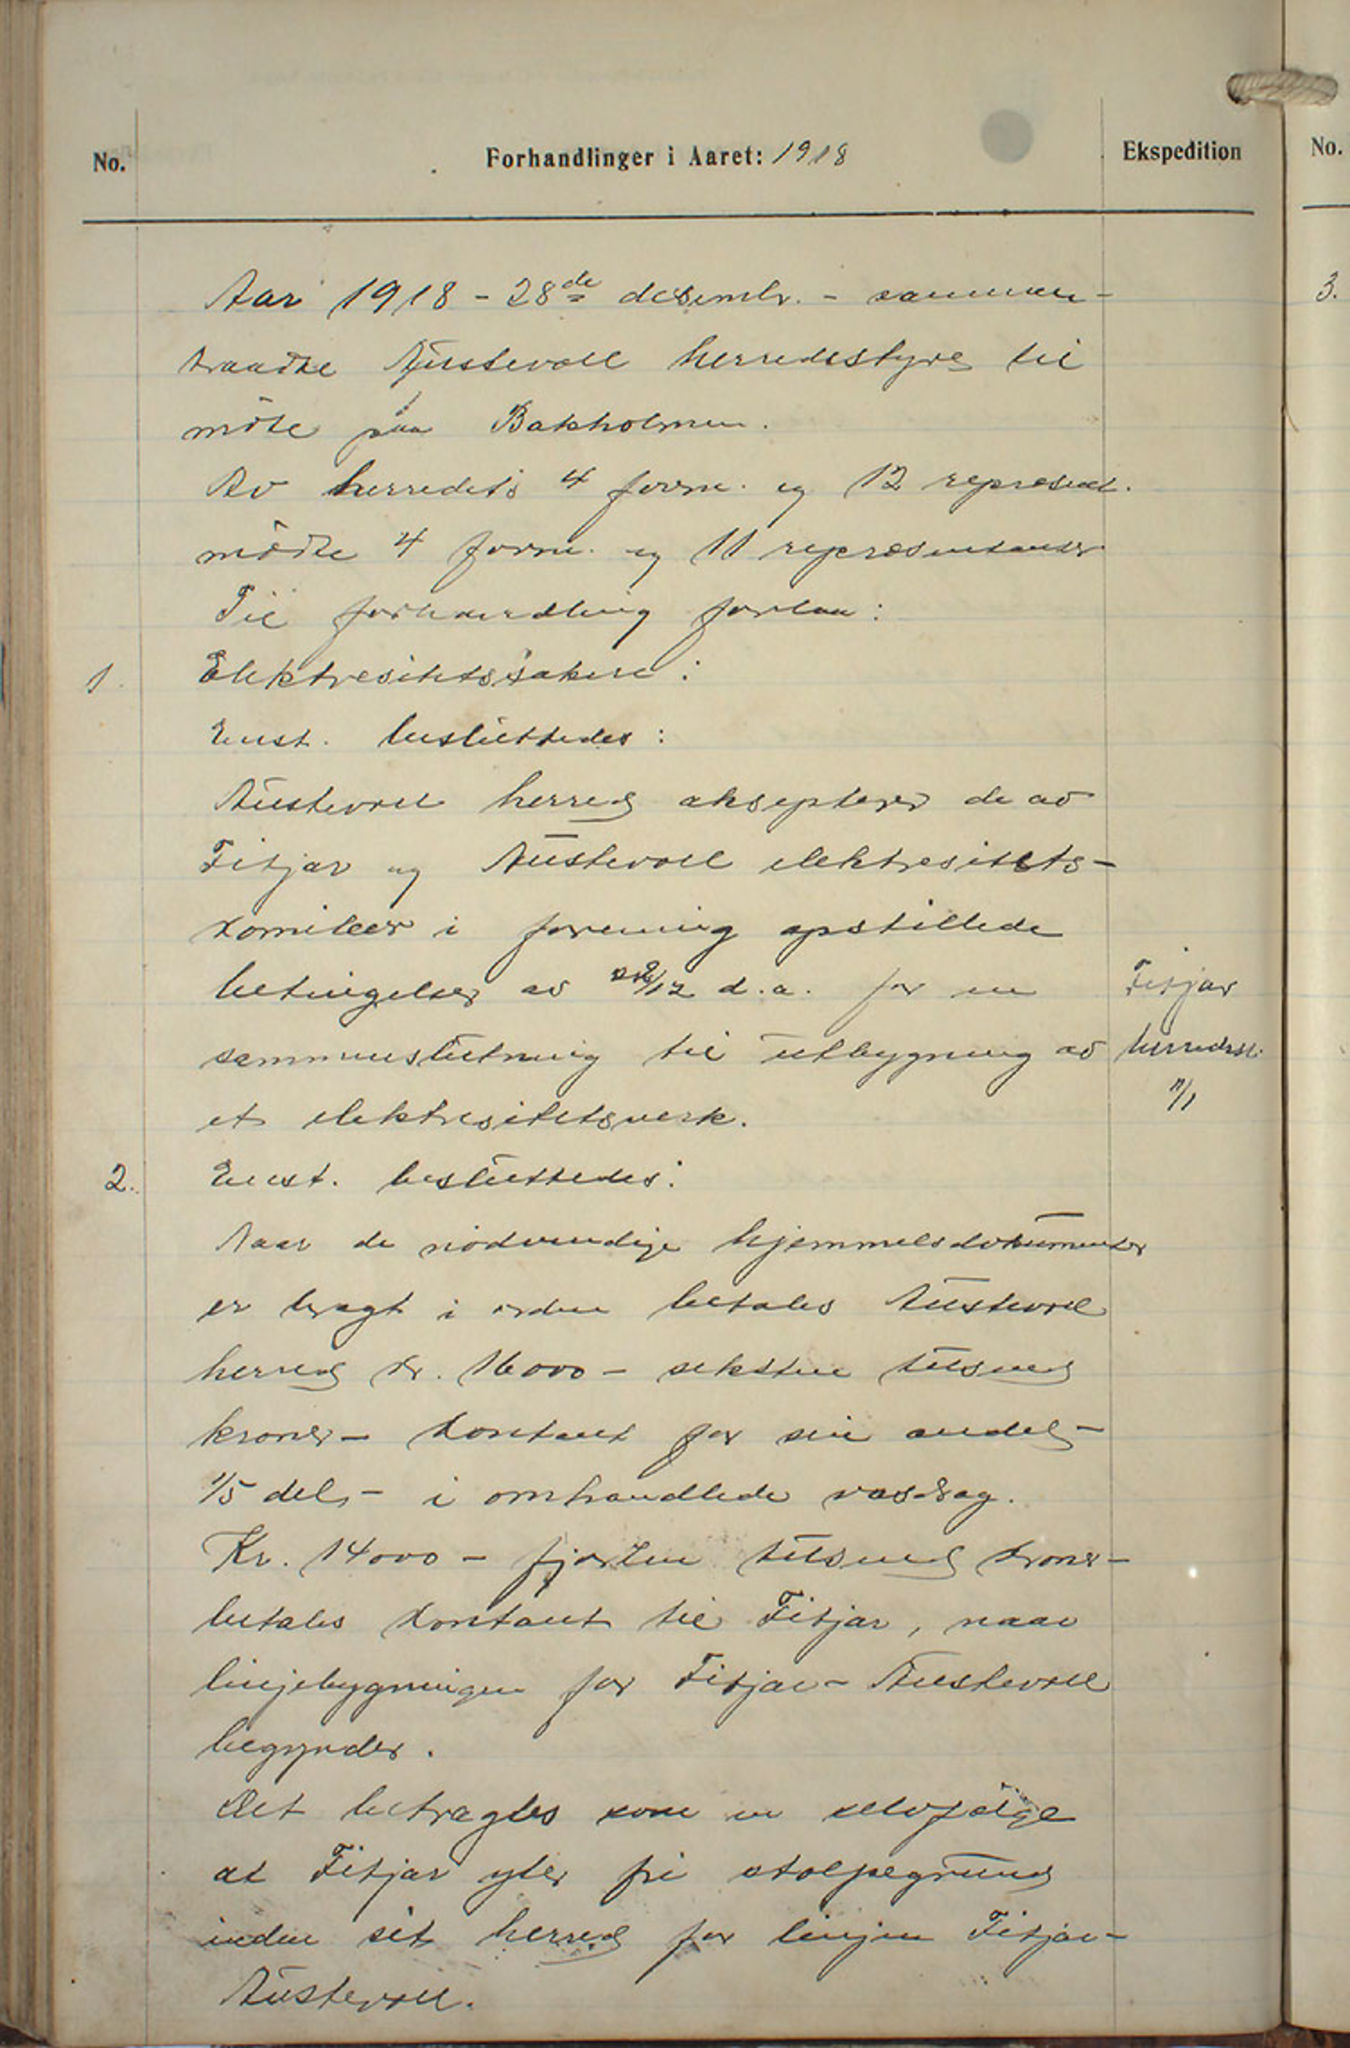 No. Forhandlinger i Aaret: 1918 Ekspedition No.
Aar 1918 - 28de desembr. - sammen-
traadte Austevoll herredsstyre til
møte paa Bakholmen.
Av herredets 4 form. og 12 represent.
mødte 4 form. og 11 representanter
Til forhandling forlaa:
1. Elektresitetssaken:
Enst. besluttedes:
Austevoll herred aksepterer de av
Fitjar og Austevoll elektresitets-
komiteer i forening opstillede
betingelser av /12 d.a. for en
sammenslutning til utbygning av
et elektresitetsverk.
Fitjar
herredsst.
2. Enst. besluttedes:
Naar de nødvendige hjemmelsdokumenter
er bragt i orden betales Austevoll
herred kr. 16000 - seksten tusend
kroner - kontant for sin andel -
1/5 del, - i omhandlede vasdrag.
Kr. 14000 - fjorten tusend kroner -
betales kontant til Fitjar, naar
linjebygningen for Fitjar - Austevoll
begynder.
Det betragtes som en selvfølge
at Fitjar yter fri stolpegrund
inden sit herred for linjen Fitjar -
Austevoll.
3.